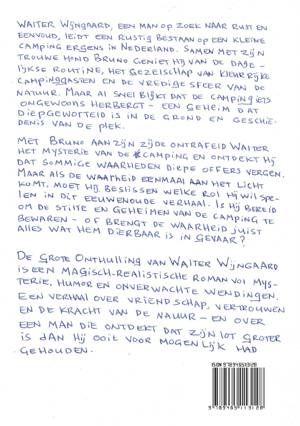 WALTER WIJNGAARD, EEN MAN OP ZOEK NAAR RUST EN
EENVOUD, LEIDT EEN RUSTIG BESTAAN OP EEN KLEINE
CAMPING ERGENS IN NEDERLAND. SAMEN MET ZIJN
TROUWE HOND BRUNO GENIET HIJ VAN DE DAGE-
LIJKSE ROUTINE, HET GEZELSCHAP VAN KLEURRIJKE
CAMPINGGASTEN EN DE VREDIGE SFEER VAN DE
NATUUR. MAAR AL SNEL BLIJKT DAT DE CAMPING IETS
ONGEWOONS HERBERGT - EEN GEHEIM DAT
DIEPGEWORTELD IS IN DE GROND EN GESCHIE-
DENIS VAN DE PLEK.
MET BRUNO AAN ZIJN ZIJDE ONTRAFELD WALTER
HET MYSTERIE VAN DE CAMPING EN ONTDEKT HIJ
DAT SOMMIGE WAARHEDEN DIEPE OFFERS VERGEN.
MAAR ALS DE WAARHEID EENMAAL AAN HET LICHT
KOMT, MOET HIJ BESLISSEN WELKE ROL HIJ WIL SPE-
LEN IN DIT EEUWENOUDE VERHAAL. IS HIJ BEREID
OM DE STILTE EN GEHEIMEN VAN DE CAMPING TE
BEWAREN - OF BRENGT DE WAARHEID JUIST
ALLES WAT HEM DIERBAAR IS IN GEVAAR?
DE GROTE ONTHULLING VAN WALTER WIJNGAARD
IS EEN MAGISCH-REALISTISCHE ROMAN VOL MYS-
TERIE, HUMOR EN ONVERWACHTE WENDINGEN.
EEN VERHAAL OVER VRIENDSCHAP, VERTROUWEN
EN DE KRACHT VAN DE NATUUR - EN OVER
EEN MAN DIE ONTDEKT DAT ZIJN LOT GROTER
IS DAN HIJ OOIT VOOR MOGENLIJK HAD
GEHOUDEN.
ISBN 9789465113128
9 789465 113128